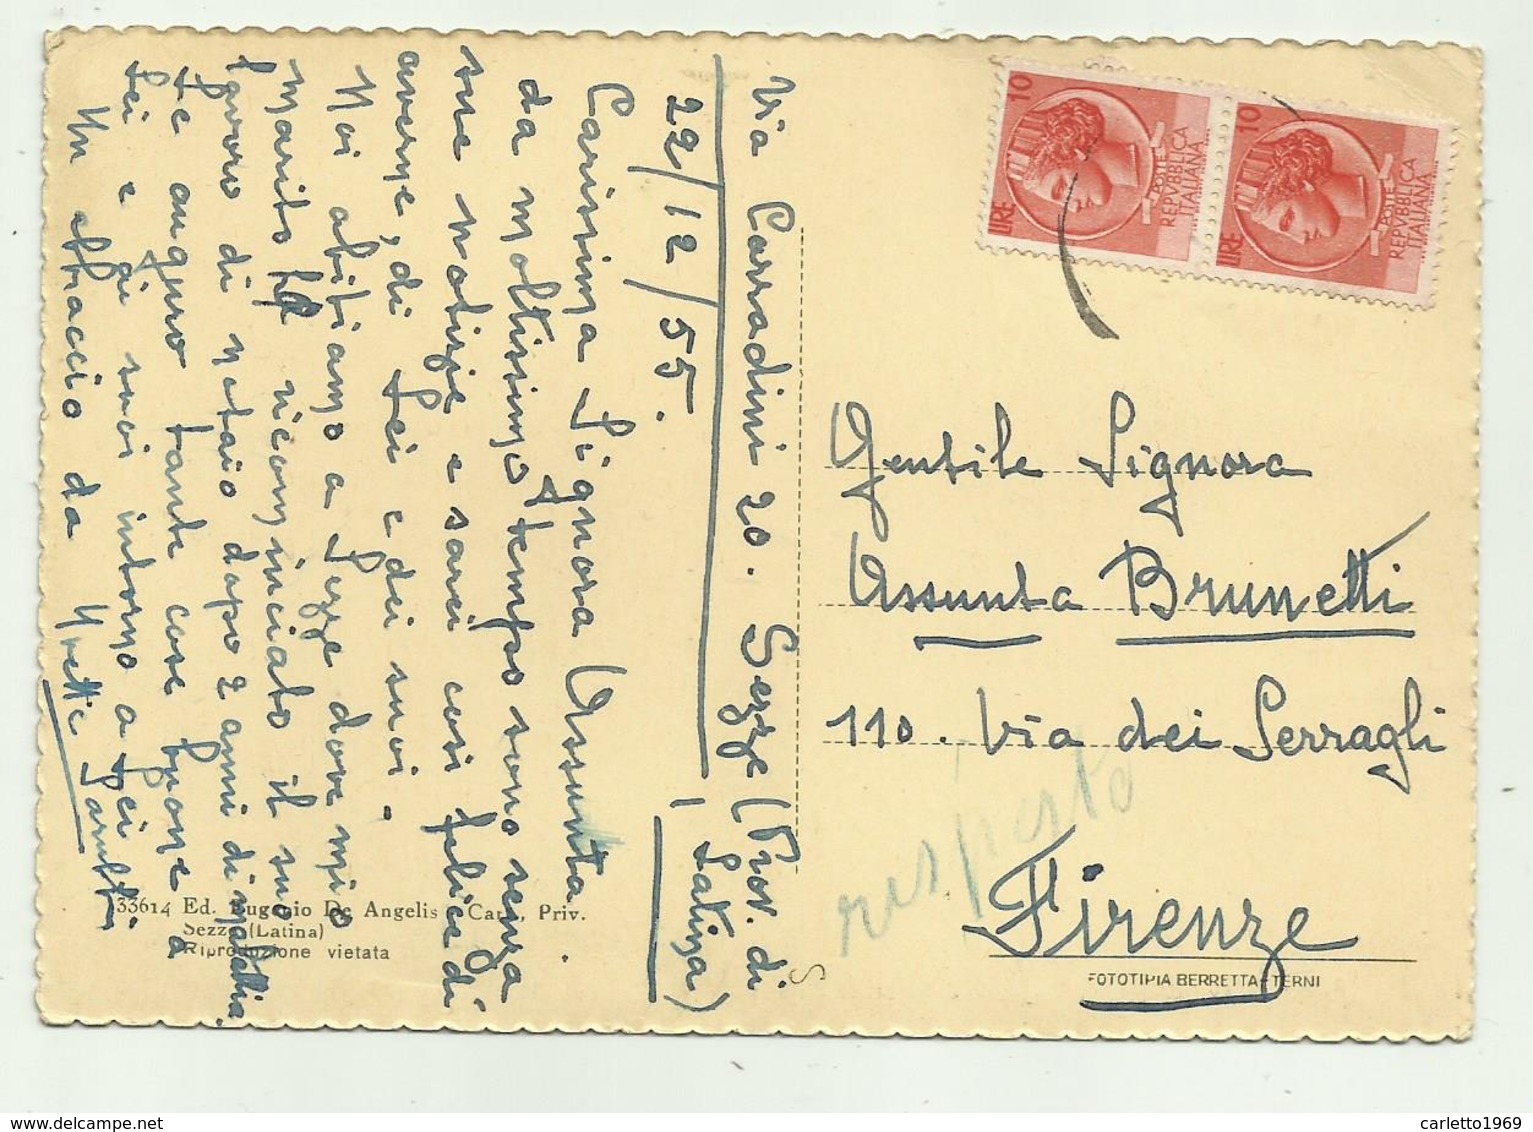 Via Corradini 20. Sezze (Prov. di
Latina)
22/12/55.
Carissima Signora Assunta.
da moltissimo tempo sono senza
sue notizie e sarei così felice di
averne, di Lei e dei suoi.
Noi abitiamo a Sezze dove mio
marito ha ricominciato il suo
lavoro di notaio dopo 2 anni di malattia.
Le auguro tante cose buone a
Lei e ai suoi intorno a Lei
Un abbraccio da Yvette
10 LIRE POSTE REPVBBLICA ITALIANA
10 LIRE POSTE REPVBBLICA ITALIANA
Gentile Signora
Assunta Brunetti
110. Via dei Serragli
Firenze
risposto
33614 Ed. Eugenio De Angelis - Cart. Priv.
Sezze (Latina)
Riproduzione vietata
FOTOTIPIA BERRETTA - TERNI
carletto1969